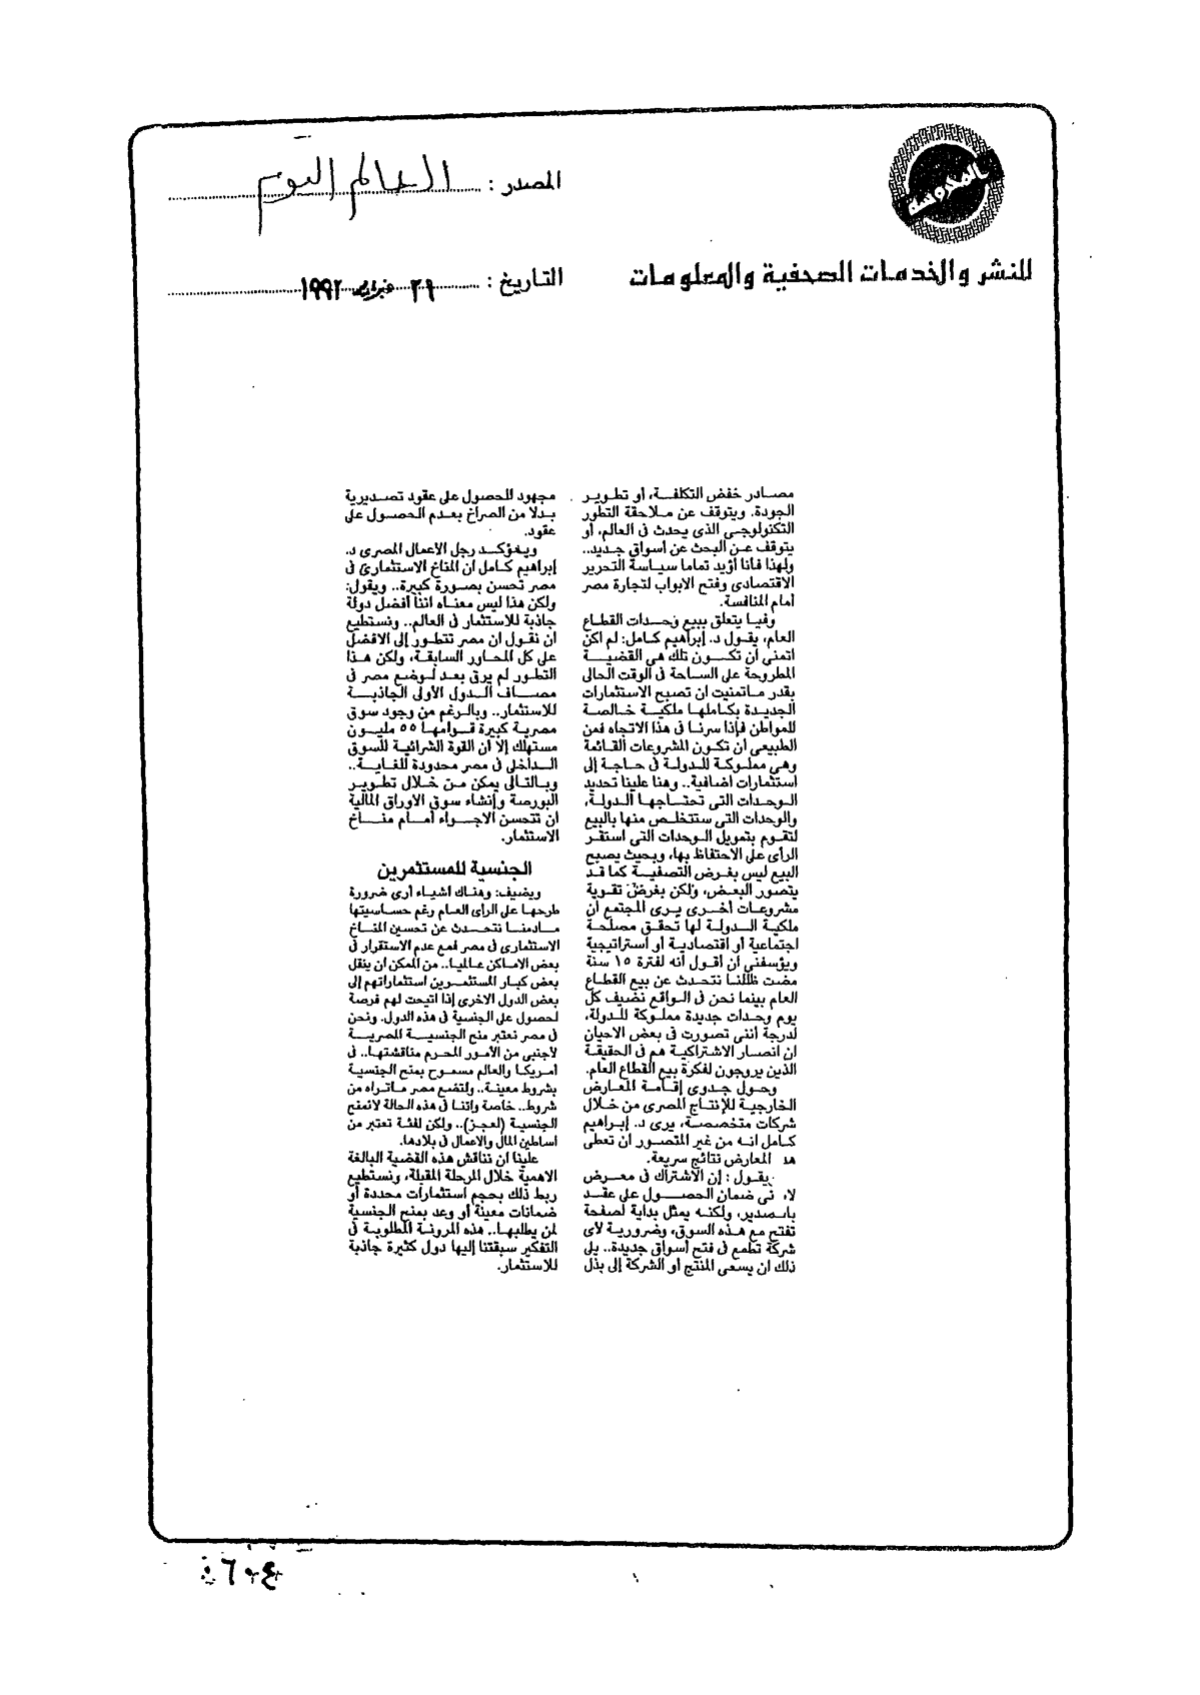 المحروسة
للنشر والخدمات الصحفية والمعلومات
المصدر : العالم اليوم
التاريخ : ٢٦ فبراير ١٩٩٢
مصادر خفض التكلفة، أو تطوير
الجودة. ويتوقف عن ملاحقة التطور
التكنولوجى الذى يحدث فى العالم، أو
يتوقف عن البحث عن أسواق جديد..
ولهذا فأنا أؤيد تماما سياسة التحرير
الاقتصادى وفتح الابواب لتجارة مصر
أمام المنافسة.
وفيا يتعلق ببيع وحدات القطاع
العام، يقول د. إبراهيم كامل: لم اكن
اتمنى أن تكون تلك هى القضية
المطروحة على الساحة فى الوقت الحالى
بقدر ماتمنيت ان تصبح الاستثمارات
الجديدة بكاملها ملكية خالصة
للمواطن فإذا سرنا فى هذا الاتجاه فمن
الطبيعى أن تكون المشروعات القائمة
وهى مملوكة للدولة فى حاجة إلى
استثمارات اضافية.. وهنا علينا تحديد
الوحدات التى تحتاجها الدولة،
والوحدات التى ستتخلص منها بالبيع
لتقوم بتمويل الوحدات التى استقر
الرأى على الاحتفاظ بها، وبحيث يصبح
البيع ليس بغرض التصفية كما قد
يتصور البعض، ولكن بغرض تقوية
مشروعات أخرى يرى المجتمع أن
ملكية الدولة لها تحقق مصلحة
اجتماعية أو اقتصادية أو استراتيجية
ويؤسفنى أن اقول أنه لفترة ١٥ سنة
مضت ظللنا نتحدث عن بيع القطاع
العام بينما نحن فى الواقع نضيف كل
يوم وحدات جديدة مملوكة للدولة،
لدرجة أننى تصورت فى بعض الاحيان
ان انصار الاشتراكية هم فى الحقيقة
الذين يروجون لفكرة بيع القطاع العام.
وحول جدوى إقامة المعارض
الخارجية للإنتاج المصرى من خلال
شركات متخصصة، يرى د. إبراهيم
كامل انه من غير المتصور ان تعطى
المعارض نتائج سريعة.
يقول : إن الاشتراك فى معرض
نى ضمان الحصول على عقد
بالتصدير، ولكنه يمثل بداية لصفحة
تفتح مع هذه السوق، وضرورية لأى
شركة تطمع فى فتح أسواق جديدة.. يلى
ذلك ان يسعى المنتج أو الشركة إلى بذل
مجهود للحصول على عقود تصديرية
بدلا من الصراخ بعدم الحصول على
عقود.
ويؤكد رجل الأعمال المصرى د.
إبراهيم كامل ان المناخ الاستثمارى فى
مصر تحسن بصورة كبيرة.. ويقول:
ولكن هذا ليس معناه اننا أفضل دولة
جاذبة للاستثمار فى العالم.. ونستطيع
ان نقول ان مصر تتطور إلى الافضل
على كل المحاور السابقة، ولكن هذا
التطور لم يرق بعد لوضع مصر فى
مصاف الدول الأولى الجاذبة
للاستثمار.. وبالرغم من وجود سوق
مصرية كبيرة قوامها ٥٥ مليون
مستهلك إلا أن القوة الشرائية للسوق
الداخلى فى مصر محدودة للغاية..
وبالتالى يمكن من خلال تطوير
البورصة وإنشاء سوق الاوراق المالية
ان تتحسن الاجواء أمام مناخ
الاستثمار.
الجنسية للمستثمرين
ويضيف: وهناك اشياء أرى ضرورة
طرحها على الرأى العام رغم حساسيتها
مادمنا نتحدث عن تحسين المناخ
الاستثمارى فى مصر فمع عدم الاستقرار فى
بعض الاماكن عالميا.. من الممكن ان ينقل
بعض كبار المستثمرين استثماراتهم إلى
بعض الدول الاخرى إذا اتيحت لهم فرصة
لحصول على الجنسية فى هذه الدول. ونحن
فى مصر نعتبر منح الجنسية المصرية
لأجنبى من الأمور المحرم مناقشتها.. فى
أمريكا والعالم مسموح بمنح الجنسية
بشروط معينة.. ولتضع مصر ماتراه من
شروط.. خاصة واننا فى هذه الحالة لانمنح
الجنسية (لعجز).. ولكن لفئة تعتبر من
اساطين المال والاعمال فى بلادها.
علينا ان نناقش هذه القضية البالغة
الاهمية خلال المرحلة المقبلة، ونستطيع
ربط ذلك بحجم استثمارات محددة أو
ضمانات معينة أو وعد بمنح الجنسية
لمن يطلبها.. هذه المرونة المطلوبة فى
التفكير سبقتنا إليها دول كثيرة جاذبة
للاستثمار.